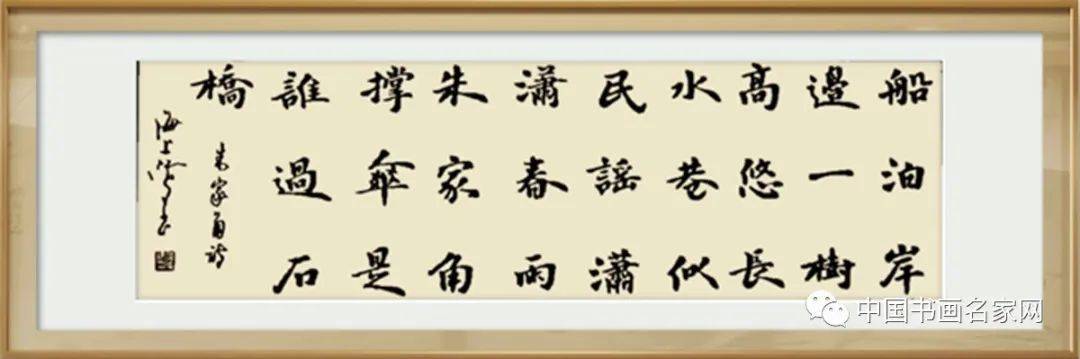 船泊岸
邊一樹
高悠長
水巷似
民謠瀟
瀟春雨
朱家角
撑傘是
誰過石
橋
朱家角詩
海上
中国书画名家网